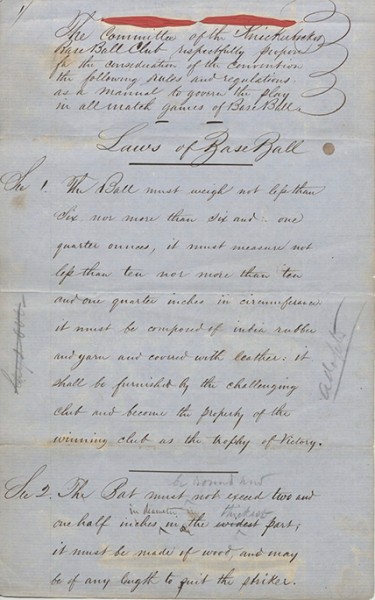 1/
The Committee of the Knickerbocker
Base Ball Club respectfully propose
for the consideration of the convention
the following rules and regulations
as a manual to govern the play
in all match games of Base Ball.
Laws of Base Ball
Sec 1. The Ball must weigh not less than
six nor more than six and one
quarter ounces, it must measure not
less than ten nor more than ten
and one quarter inches in circumference
it must be composed of india rubber
and yarn and covered with leather: it
shall be furnished by the challenging
club and become the property of the
winning club as the trophy of victory.
be round and
Sec 2. The Bat must not exceed two and
in diameter thickest
one half inches in the widest part;
it must be made of wood and may
be of any length to suit the striker.